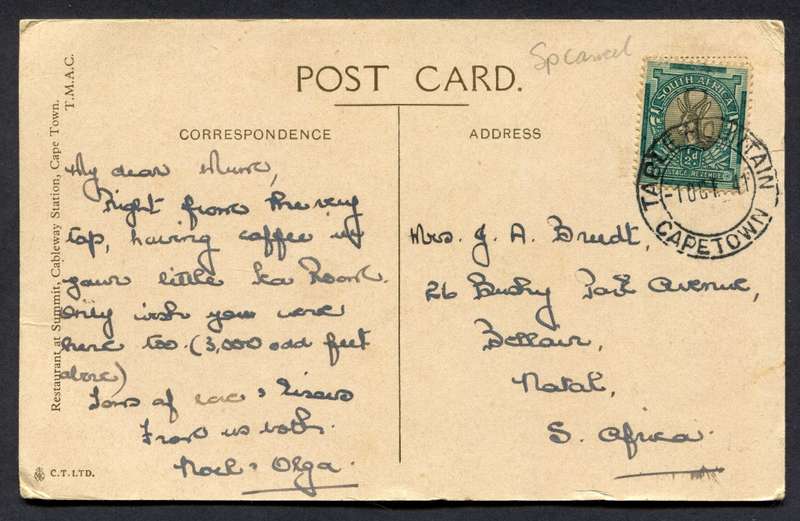 Sp cancel
POST CARD.
CORRESPONDENCE
ADDRESS
SOUTH AFRICA
½d
POSTAGE REVENUE
TABLE MOUNTAIN
-1 OCT 41
CAPETOWN
My dear Mum,
Right from the very
top, having coffee in
your little Tea Room.
Only wish you were
here too. (3,000 odd feet
above)
Tons of love & kisses
From us both.
Noel & Olga.
Mrs. J. A. Breedt,
26 Bushy Park Avenue,
Bellair,
Natal,
S. Africa.
Restaurant at Summit, Cableway Station, Cape Town.
T.M.A.C.
C.T. LTD.